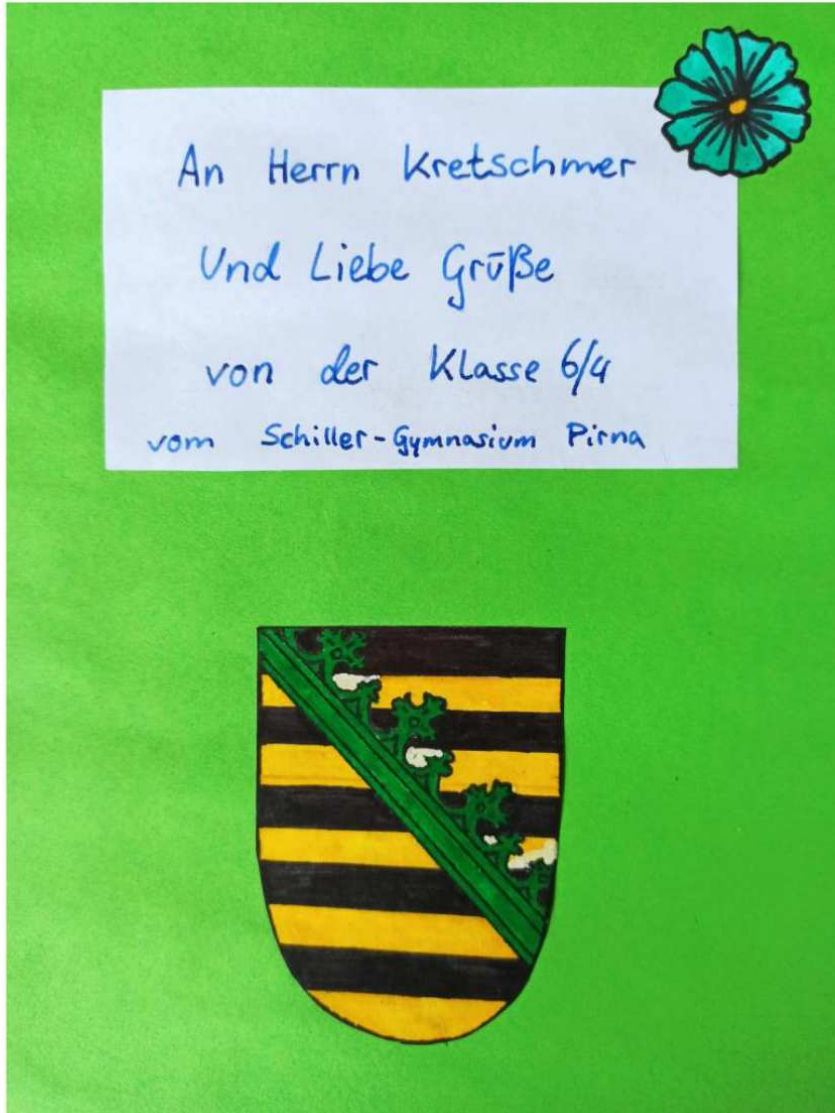 An Herrn Kretschmer
Und Liebe Grüße
von der Klasse 6/4
vom Schiller-Gymnasium Pirna